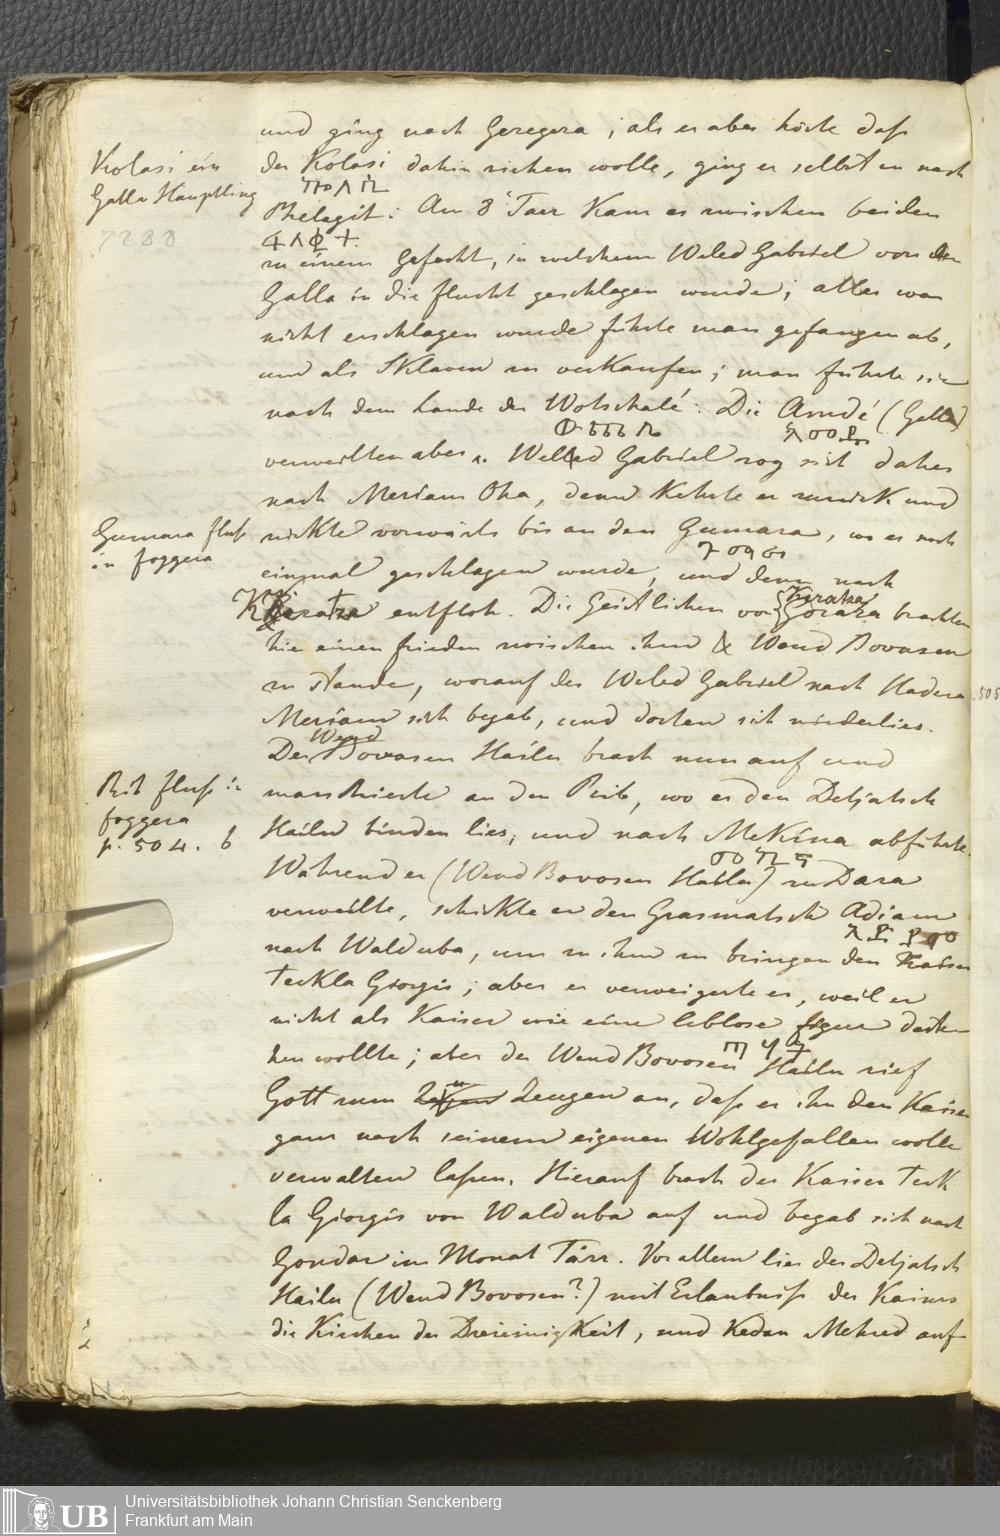 und ging nach Geregera ; als er aber hörte daß
Kolasi ein
Galla Häuptling
der Kolasi dahin ziehen wolle, ging er selbst en nach
Phelagit : Am 8 Taer Kam es zwischen beiden
zu einem Gefecht, in welchem Weled Gabriel von den
Galla in die flucht geschlagen wurde ; alles was
nicht erschlagen wurde führte man gefangen ab,
um als Sklaven zu verkaufen ; man führte sie
nach dem Lande der Wotschalé : Die Amdé (Galla)
verweilten aber . Weled Gabriel zog sich daher
nach Meriam Oha, denn Kehrte er zurück und
Gumara fluß
in foggera
rückte vorwärts bis an den Gumara, wo er noch
ጉማራ
einmal geschlagen wurde, und dann nach
Kiratza entfloh. Die Geistlichen von Kiratza Gorara brachten
hier einen frieden zwischen ihm & Wend Bovosen
zu Stande, worauf der Weled Gabriel nach Hadera
505
Meriam sich begab, und dorten sich niederlies.
Der Wend Bovosen Hailu brach nun auf und
Reb fluß in
foggera
p. 504. b
marschierte an den Reib, wo er den Detjatsch
Hailu binden lies, und nach Mekina abführte.
መኪና
Während er (Wend Bovosen Hailu) zu Dara
verweilte, schickte er den Grasmatsch Adiam
nach Walduba, um zu ihm zu bringen den Kaiser
Teckla Giorgis ; aber er verweigerte es, weil er
nicht als Kaiser wie eine leblose figur dastehen
hen wollte ; aber der Wend Bovosen Hailu rief
Gott zum Zeugen an, daß er ihn den Kaiser
ganz nach seinem eigenen Wohlgefallen wolle
verwalten laßen. Hierauf brach der Kaiser Teck
la Giorgis von Walduba auf und begab sich nach
Gondar im Monat Tärr. Vor allem lies der Detjatsch
Hailu (Wend Bovosen?) mit Erlaubniß des Kaisers
die Kirchen der Dreieinigkeit, und Kedan Mehred auf
UB
Universitätsbibliothek Johann Christian Senckenberg
Frankfurt am Main